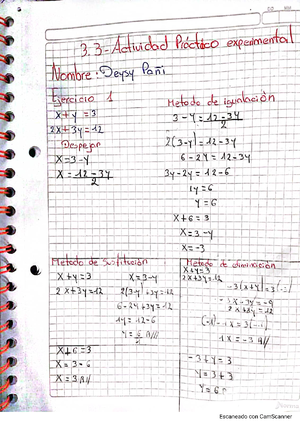 3.3-Actividad Práctico experimental
Nombre: Deysy Pañi
Ejercicio 1
x + y = 3
2x + 3y = 12
Despejar
x = 3 - y
x = 12 - 3y
2
Metodo de igualación
3 - y = 12 - 3y
2
2(3 - y) = 12 - 3y
6 - 2y = 12 - 3y
3y - 2y = 12 - 6
1y = 6
y = 6
x + 6 = 3
x = 3 - y
x = -3
Metodo de Sustitución
x + y = 3
x = 3 - y
2x + 3y = 12
2(3 - y) + 3y = 12
6 - 2y + 3y = 12
1y = 12 - 6
x + 6 = 3
x = 3 - 6
x = 3 //
Metodo de eliminación
x + y = 3
2x + 3y = 12
-3(x + y) = 3
-3x - 3y = -9
2x + 3y = 12
-1x = 3
x = -3 //
-3 + y = 3
y = 3 + 3
y = 6
Escaneado con CamScanner